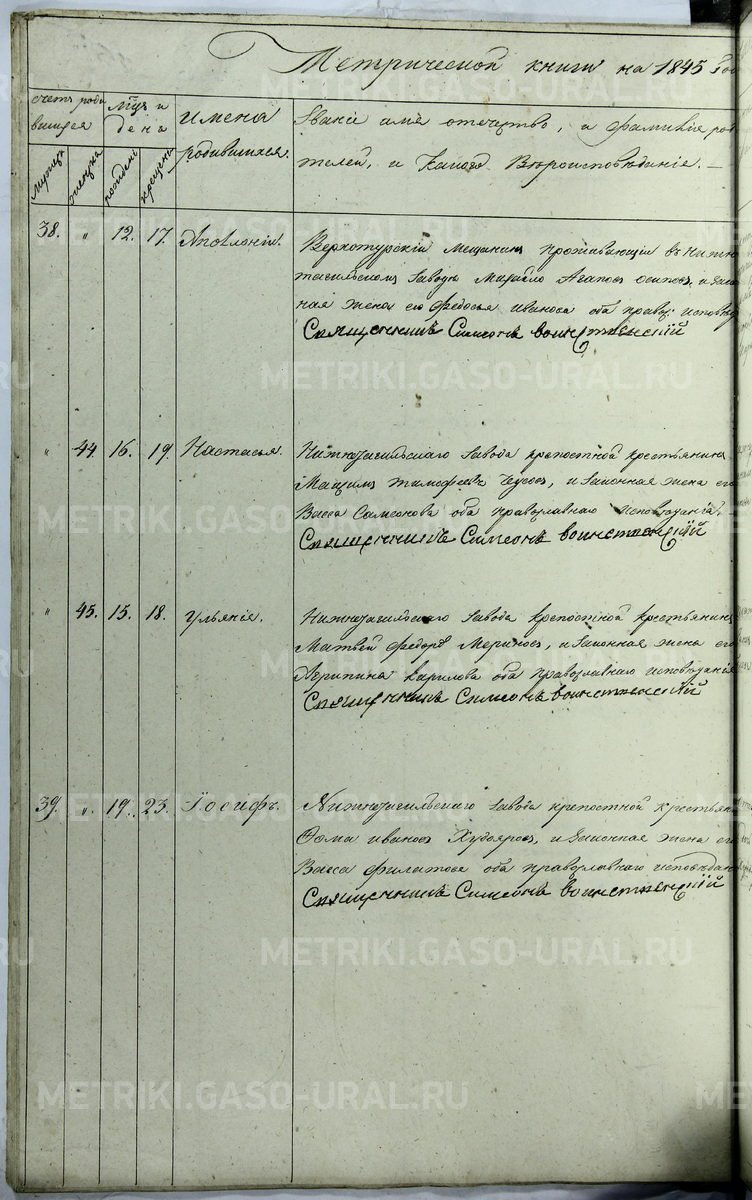 Метрической книги на 1845 Год
счетъ роди
вшихся
Мцъ и
дена
имена
родившихся.
Званіе имя отечество, и фамилія род
ителей, и Какого Вѣроисповѣданія. —
мужеска
женска
рожденія
крещенія
38. " 12. 17. Аполоній.
Верхотурскій Мещанинъ проживающій въ Нижне
тагильскомъ Заводѣ Михайло Агаповъ осиповъ, и закон
ная жена его Федосья иванова оба правос: исповѣд
Священникъ Симеонъ воинственскій
" 44. 16. 19. Настасья.
Нижнетагильскаго Завода крепостной крестьянинъ
Максимъ тимофеевъ Чусовъ, и Законная жена его
Васса Самсонова оба православнаго исповѣданія. –
Священникъ Симеонъ воинственскій
" 45. 15. 18. ульянія.
Нижнетагильскаго Завода крепостной крестьянинъ
Матвей федоровъ Мериновъ, и Законная жена его
Агрипина кирилова оба православнаго исповѣданія
Священникъ Симеонъ воинственскій
39. ". 19. 23. Іосифъ.
Нижнетагильскаго Завода крепостной крестьян
Фома ивановъ Худояровъ, и Законная жена его
Васса филатова оба православнаго исповѣдан
Священникъ Симеонъ воинственскій
METRIKI.GASO-URAL.RU